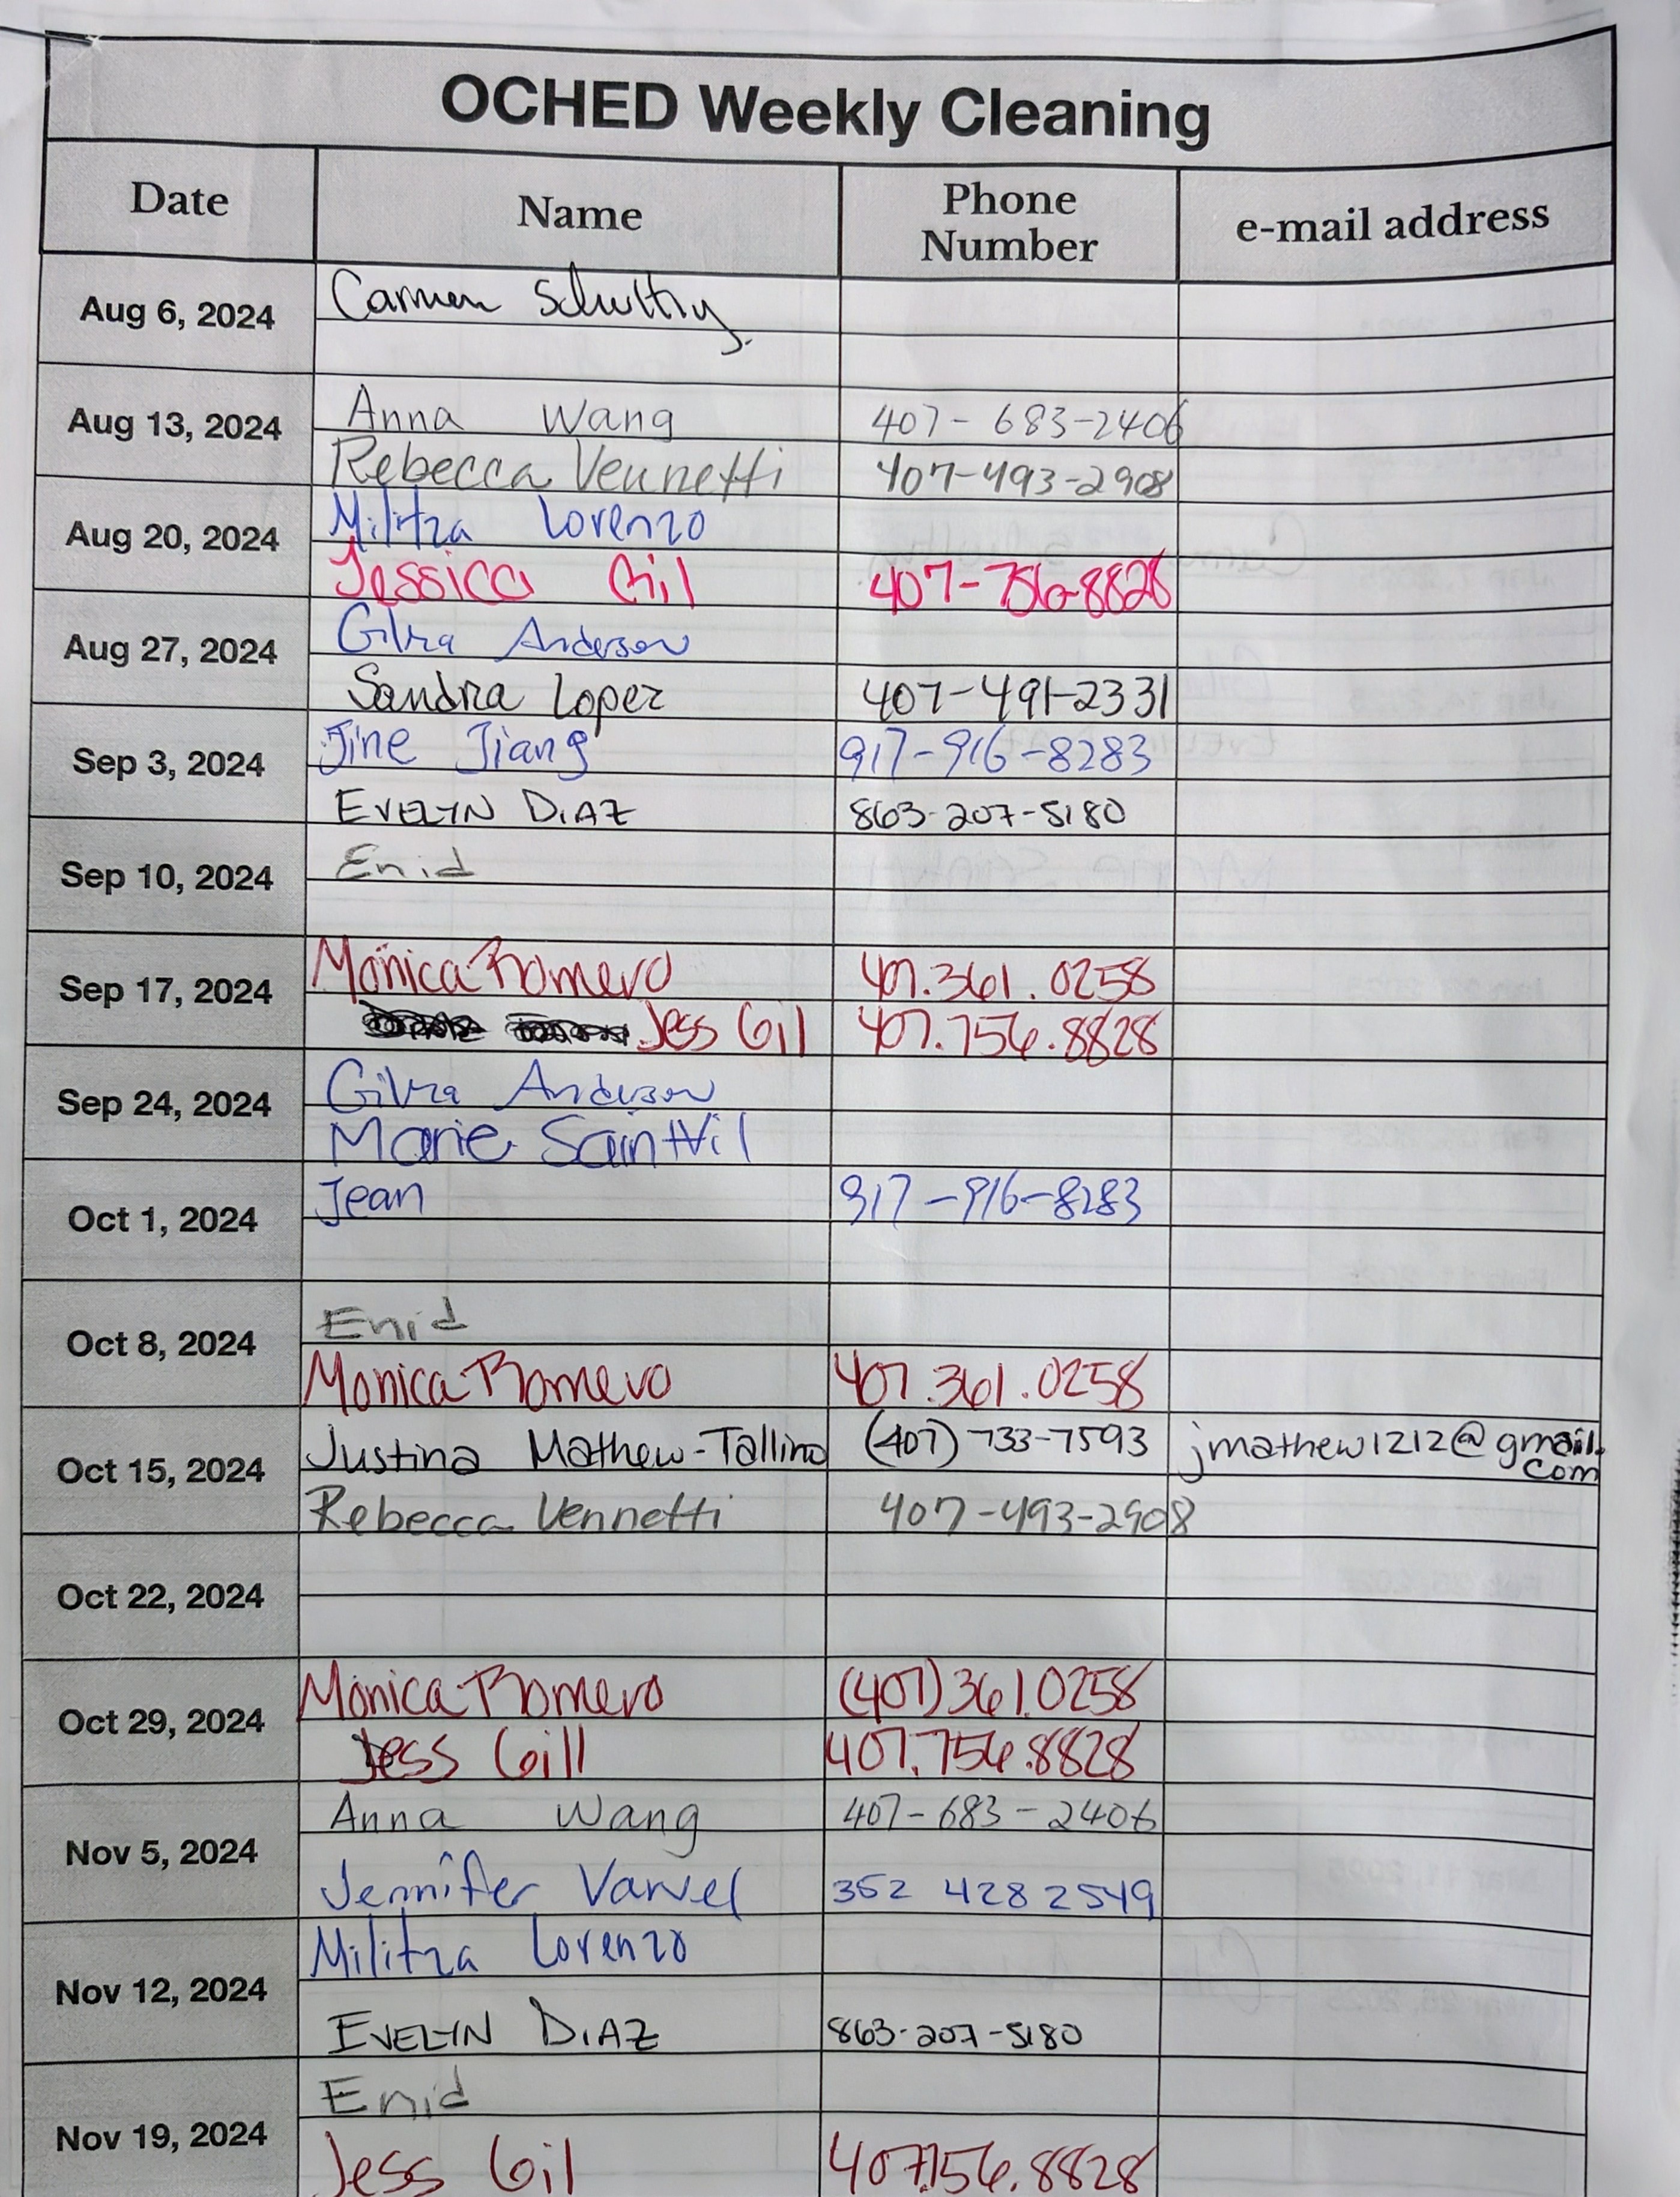 OCHED Weekly Cleaning
Date Name Phone Number e-mail address
Aug 6, 2024 Carmen
Aug 13, 2024 Anna Wang 407-683-2406
Rebecca Vennetti 407-493-2908
Aug 20, 2024 Militza Lorenzo
Jessica Gil 407-756-8828
Aug 27, 2024 Anderson
Sandra Lopez 407-491-2331
Sep 3, 2024 Jine Jiang 917-916-8283
EVELYN DIAZ 863-207-5180
Sep 10, 2024 Enid
Sep 17, 2024 Monica Romero 407.361.0258
Jess Gil 407.756.8828
Sep 24, 2024 Anderson
Marie SaintVil
Oct 1, 2024 Jean 917-916-8283
Oct 8, 2024 Enid
Monica Romero 407.361.0258
Oct 15, 2024 Justina Mathew-Tallino (407) 733-7593 jmathew1212@gmail.com
Rebecca Vennetti 407-493-2908
Oct 22, 2024
Oct 29, 2024 Monica Romero (407)361.0258
Jess Gill 407.756.8828
Nov 5, 2024 Anna Wang 407-683-2406
Jennifer Varvel 352 428 2549
Nov 12, 2024 Militza Lorenzo
EVELYN DIAZ 863-207-5180
Nov 19, 2024 Enid
Jess Gil 407.756.8828